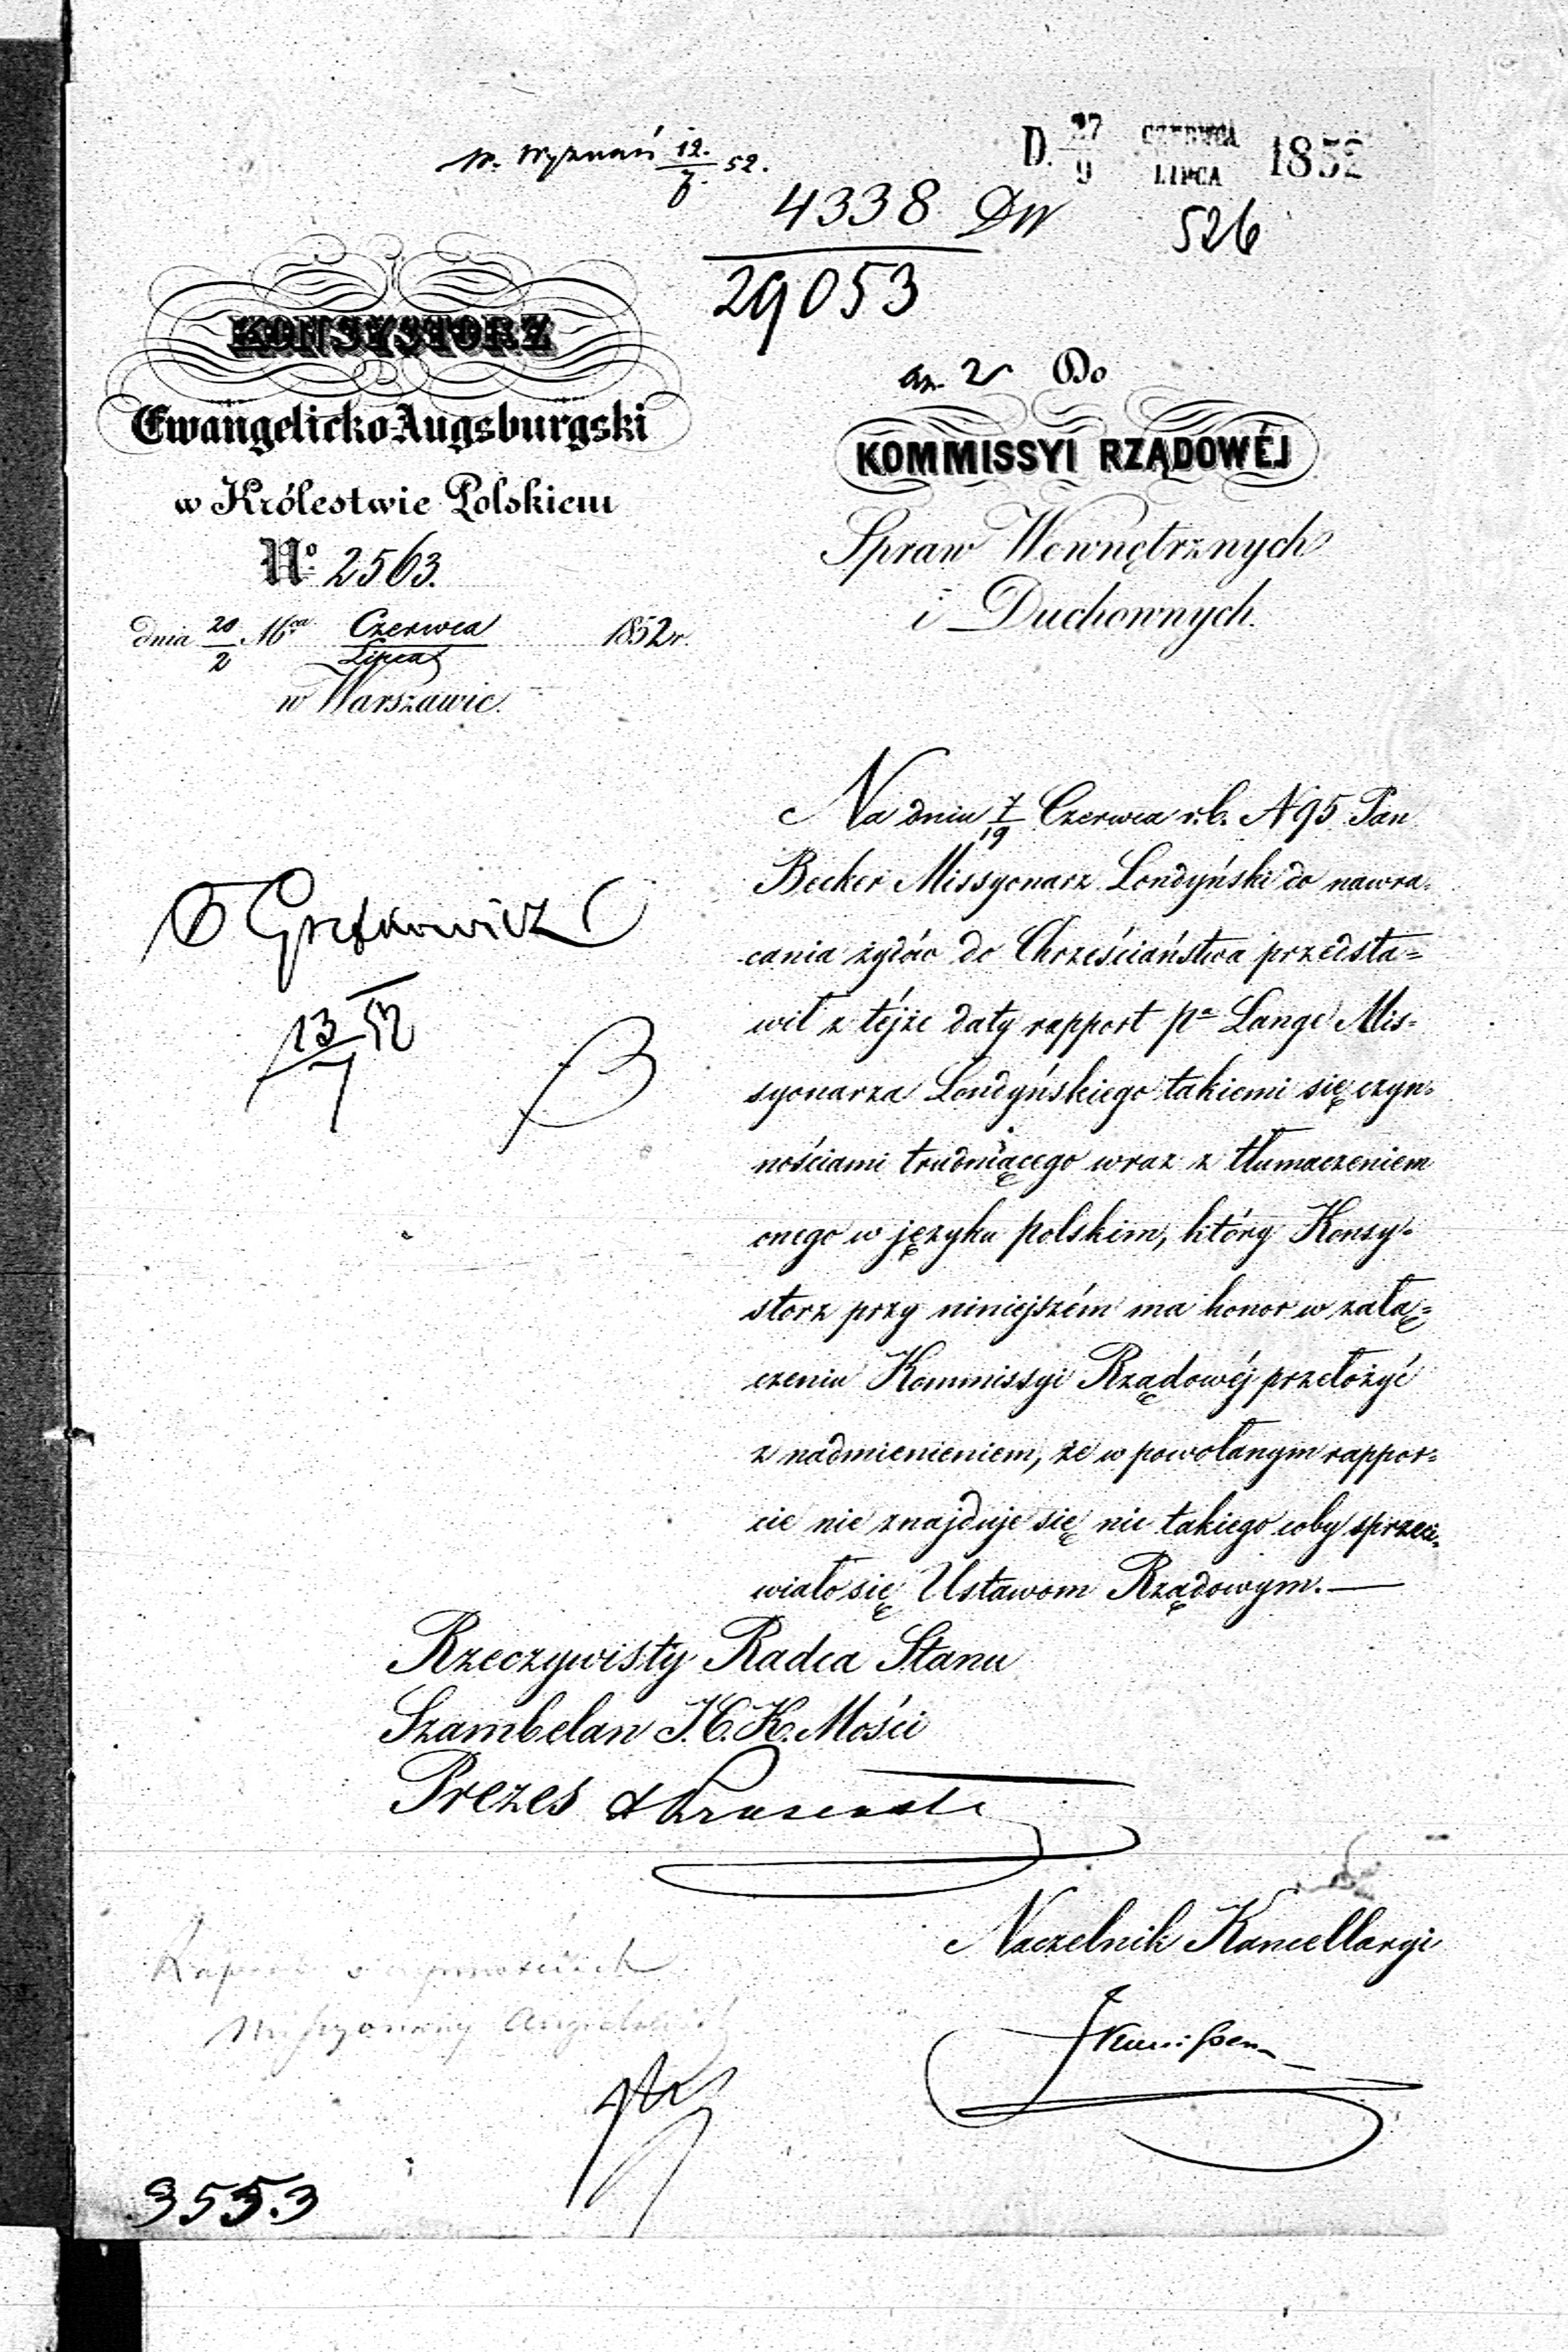 w. Wyznań 12./7. 52.
D. 27/9 CZERWCA/LIPCA 1852
4338 DW
526
29053
KONSYSTORZ
Ewangelicko-Augsburgski
w Królestwie Polskiem
Nº 2563.
dnia 20/2 Mca Czerwca/Lipca 1852 r.
w Warszawie.
an. 2 Do
KOMMISSYI RZĄDOWÉJ
Spraw Wewnętrznych
i Duchownych.
Na dniu 7/19 Czerwca r.b. N 95 Pan
Becker Missyonarz Londyński do nawra-
cania żydów do Chrześciaństwa przedsta=
wił z téjże daty rapport pa Lange Mis-
syonarza Londyńskiego takiemi się czyn-
nościami trudniącego wraz z tłumaczeniem
onego w języku polskim, który Konsy-
storz przy niniejszém ma honor w załą=
czeniu Kommissyi Rządowéj przełożyć
z nadmienieniem, że w powołanym rappor=
cie nie znajduje się nic takiego coby sprzeci-
wiało się Ustawom Rządowym.—
13/7 52
Rzeczywisty Radca Stanu
Szambelan J.C.K. Mości
Prezes
Naczelnik Kancellaryi
3553